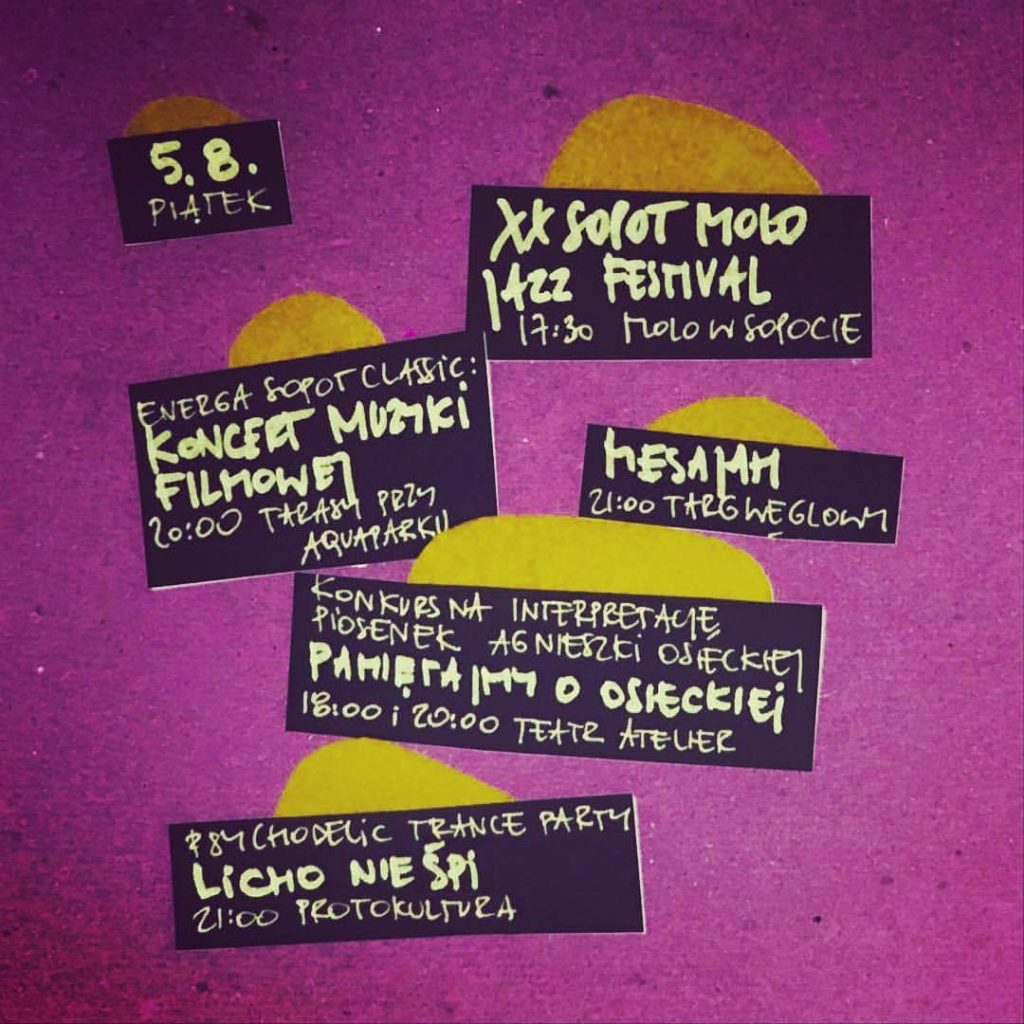 5.8.
PIĄTEK
XX SOPOT MOLO
JAZZ FESTIVAL
17:30 MOLO W SOPOCIE
ENERGA SOPOT CLASSIC:
KONCERT MUZYKI
FILMOWEJ
20:00 TARASY PRZY
AQUAPARKU
MESAJAH
21:00 TARG WĘGLOWY
KONKURS NA INTERPRETACJĘ
PIOSENEK AGNIESZKI OSIĘCKIEJ
PAMIĘTAJMY O OSIECKIEJ
18:00 i 20:00 TEATR ATELIER
PSYCHODELIC TRANCE PARTY
LICHO NIE ŚPI
21:00 PROTOKULTURA